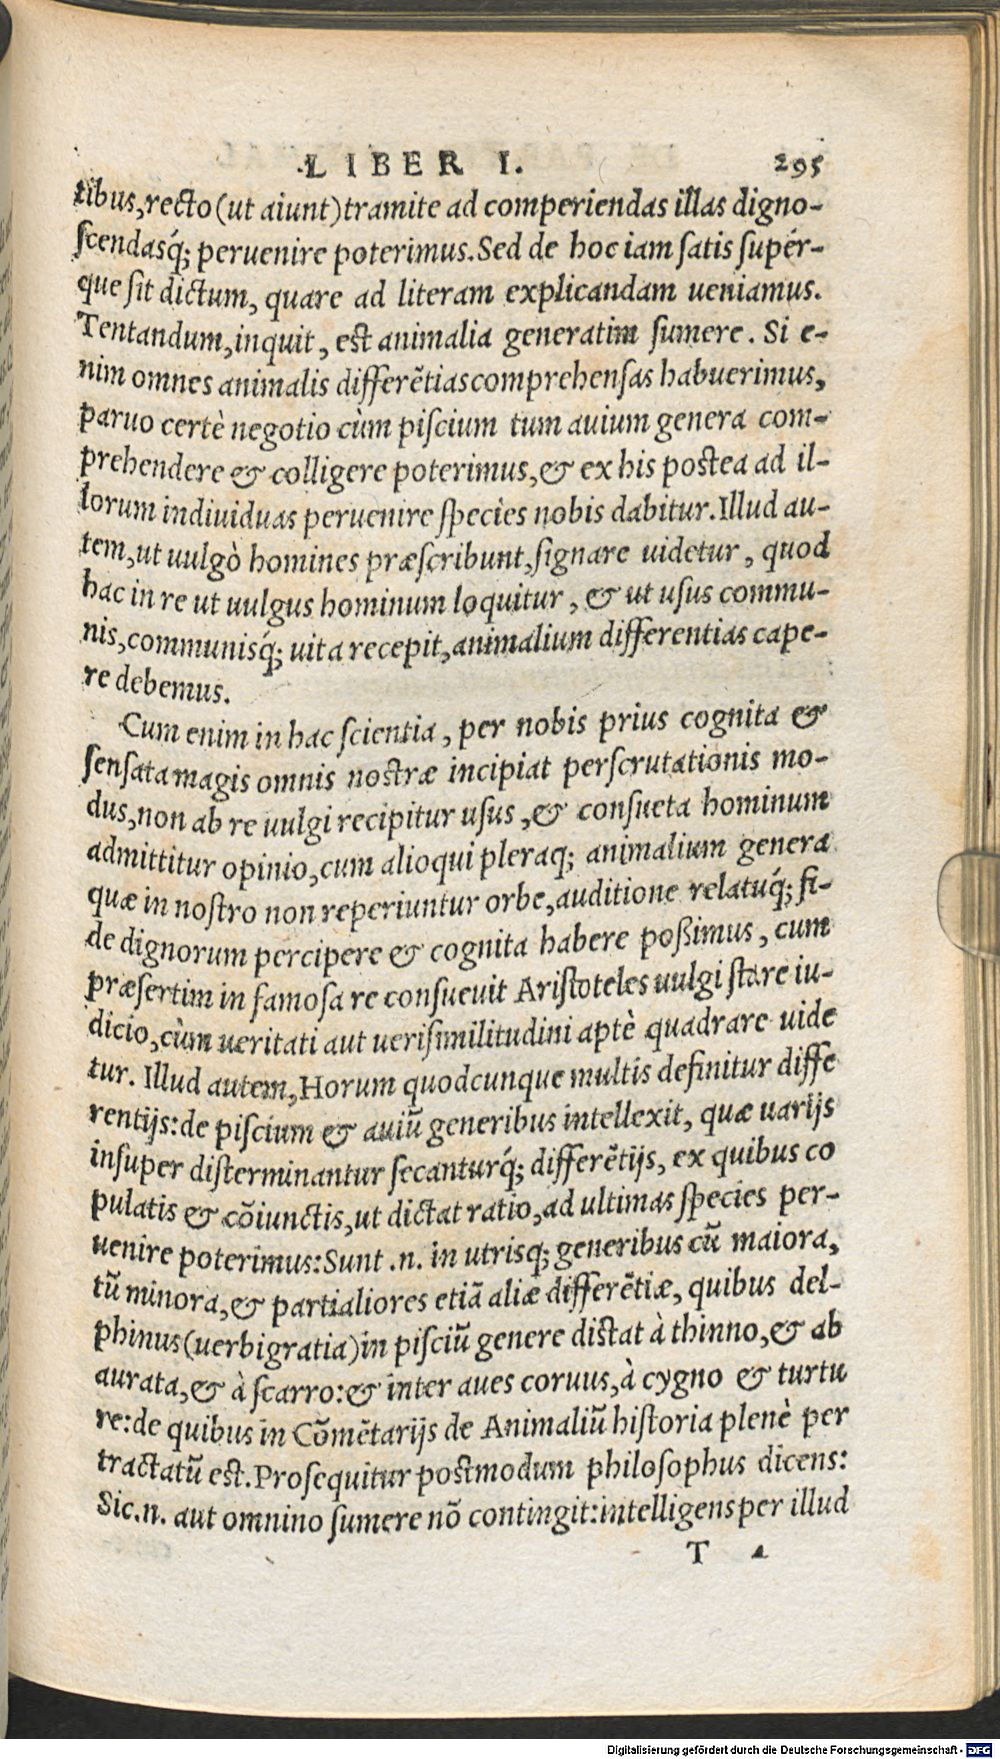 LIBER I. 295
tibus,recto(ut aiunt)tramite ad comperiendas illas digno-
scendasq́; peruenire poterimus.Sed de hoc iam satis supér-
que sit dictum, quare ad literam explicandam ueniamus.
Tentandum,inquit, est animalia generatim sumere. Si e-
nim omnes animalis differẽtias comprehensas habuerimus,
paruo certè negotio cùm piscium tum auium genera com-
prehendere & colligere poterimus,& ex his postea ad il-
lorum indiuiduas peruenire spècies nobis dabitur.Illud au-
tem,ut uulgò homines præscribunt,signare uidetur, quod
hac in re ut uulgus hominum loquitur, & ut usus commu-
nis,communisq́; uita recepit,animalium differentias cape-
re debemus.
Cum enim in hac scientia, per nobis prius cognita &
sensata magis omnis nostræ incipiat perscrutationis mo-
dus,non ab re uulgi recipitur usus,& consueta hominum
admittitur opinio,cum alioqui pleraq; animalium genera
quæ in nostro non reperiuntur orbe,auditione relatuq́; fi-
de dignorum percipere & cognita habere poßimus, cum
præsertim in famosa re consueuit Aristoteles uulgi stare iu-
dicio,cùm ueritati aut uerisimilitudini aptè quadrare uide
tur. Illud autem,Horum quodcunque multis definitur diffe
rentijs:de piscium & auiũ generibus intellexit, quæ uarijs
insuper disterminantur secanturq́; differẽtijs, ex quibus co
pulatis & cõiunctis,ut dictat ratio,ad ultimas species per-
uenire poterimus:Sunt .n. in utrisq; generibus cũ maiora,
tũ minora,& partialiores etiã aliæ differẽtiæ, quibus del-
phinus(uerbi gratia)in pisciũ genere distat à thinno,& ab
aurata,& à scarro:& inter aues coruus,à cygno & turtu
re:de quibus in Cõmẽtarijs de Animaliũ historia plenè per
tractatũ est.Prosequitur postmodum philosophus dicens:
Sic.n. aut omnino sumere nõ contingit:intelligens per illud
T 4
Digitalisierung gefördert durch die Deutsche Forschungsgemeinschaft - DFG